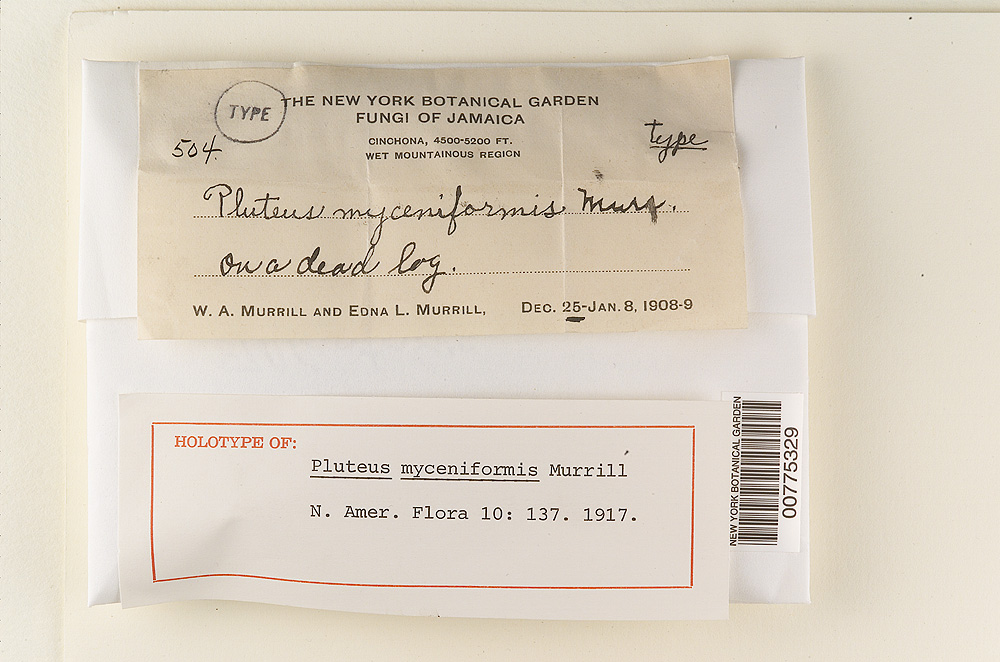 TYPE
THE NEW YORK BOTANICAL GARDEN
FUNGI OF JAMAICA
CINCHONA, 4500-5200 FT.
WET MOUNTAINOUS REGION
504.
type
Pluteus myceniformis Murr.
on a dead log.
W. A. MURRILL AND EDNA L. MURRILL, DEC. 25-JAN. 8, 1908-9
HOLOTYPE OF:
Pluteus myceniformis Murrill
N. Amer. Flora 10: 137. 1917.
NEW YORK BOTANICAL GARDEN
00775329